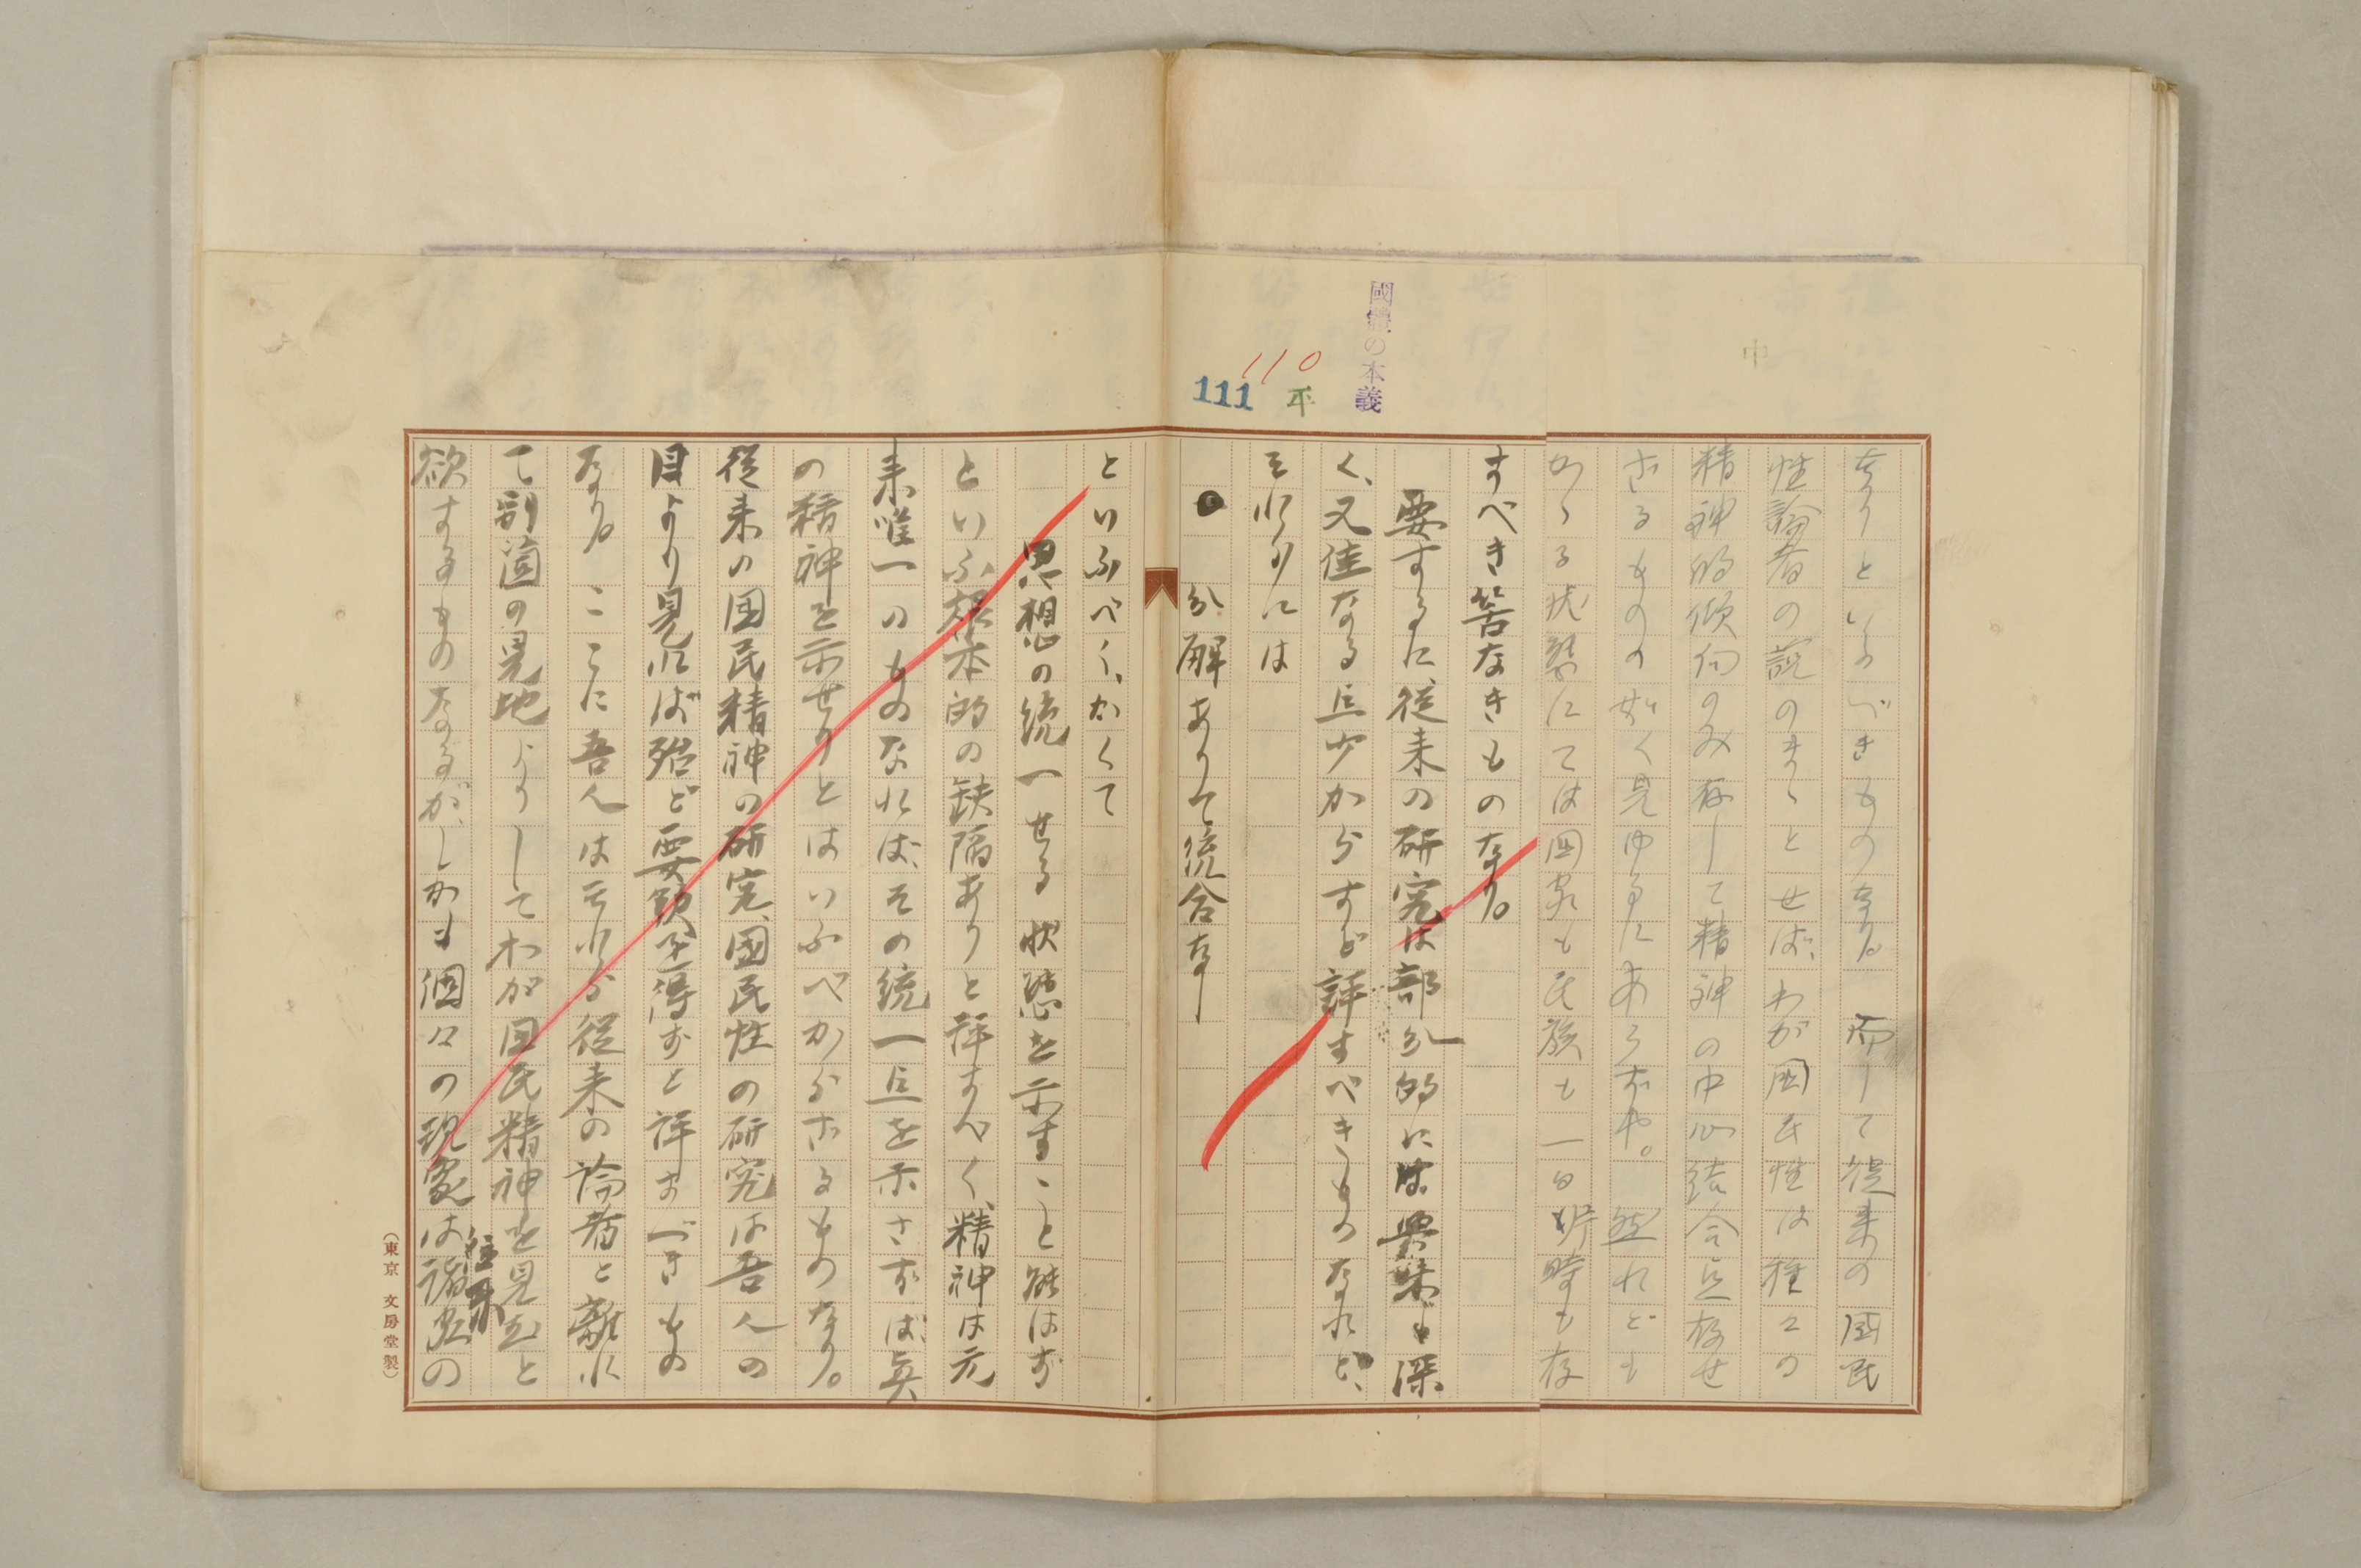 國體の本義
110
111
平
中
なりといふべきものなり。而して従来の国民
性論者の説のまゝとせば、わが国民性は種々の
精神的傾向のみ存して精神の中心結合点存せ
ざるものの如く見ゆるにあらずや。然れども
かゝる状態にては国家も民族も一日片時も存
すべき筈なきものなり。
要するに、従来の研究は部分的には興味も深
く、又佳なる点少からずと評すべきものなれど、
それらには
分解ありて統合なし
といふべく、かくて
思想の統一せる状態を示すこと能はず
といふ根本的の缺陥ありと評すべく、精神は元
来唯一のものなれば、その統一点を示さずば真
の精神を示せりとはいふべからざるものなり。
従来の国民精神の研究、国民性の研究は吾人の
目より見れば殆ど要領を得ずと評すべきもの
なり。ここに吾人はそれら従来の論者と離れ
て別箇の見地よりしてわが国民精神を見むと
欲するものなるが、しかも個々の現象は諸家の
従来
(東京 文房堂製)